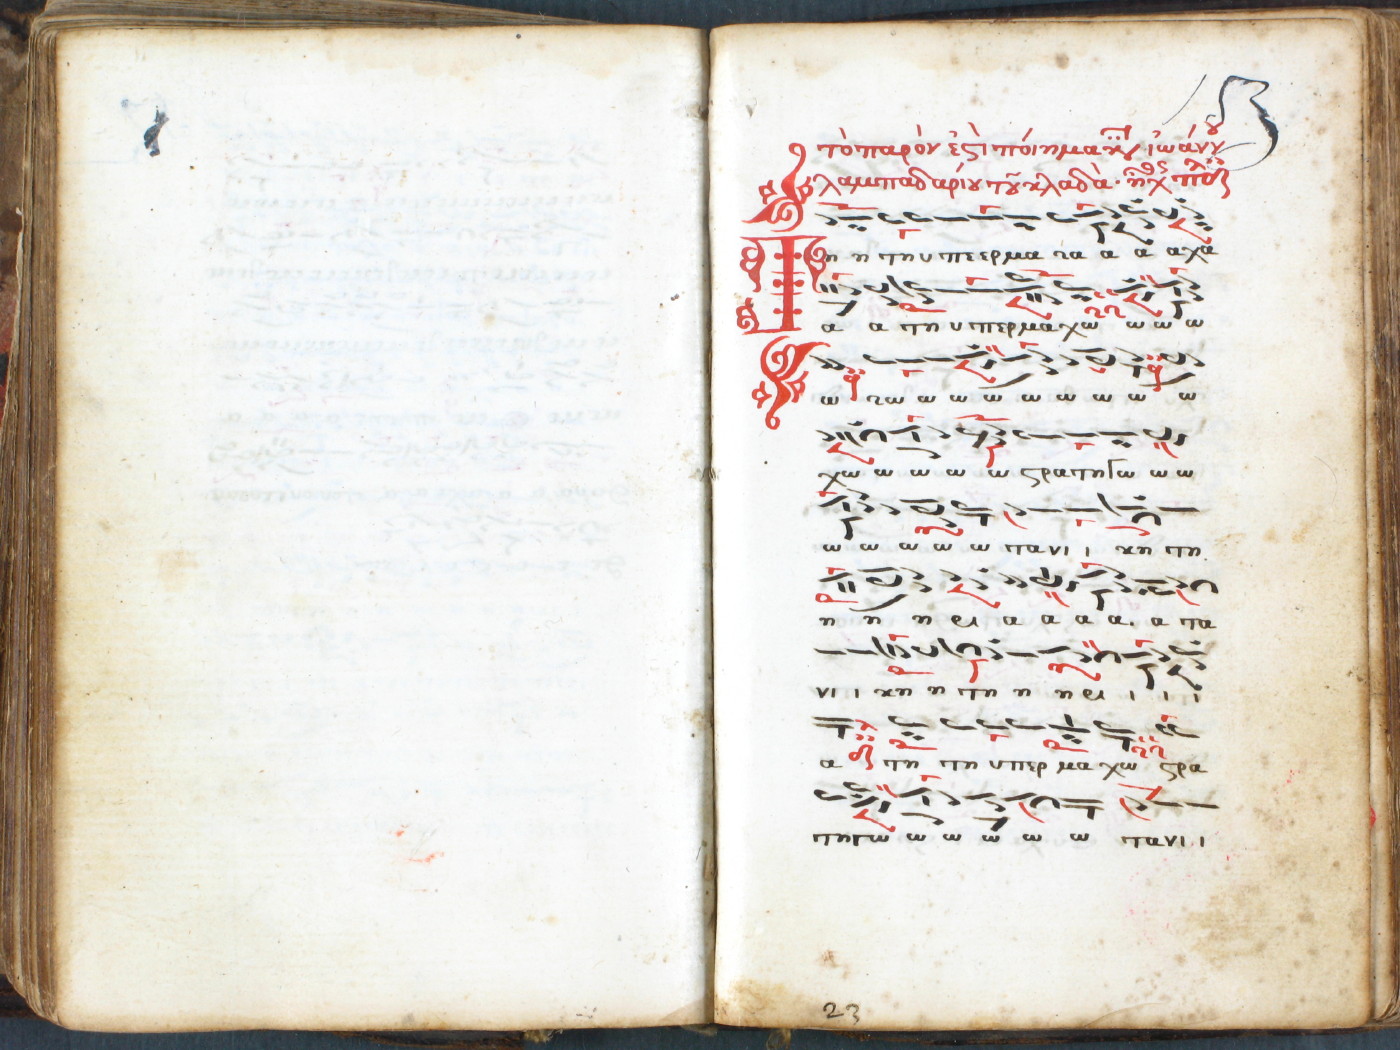 τὸ παρὸν ἐστὶ ποίημα κυ ἰωάννου
λαμπαδαρίου τοῦ κλαδᾶ. ἦχ πλ δ
Τη η τη υ πε ερ μα τα α α α χα
α α τη υ περ μα χω ω ω ω
ω τω ω ω ω ω ω ω ω ω
χω ω ω ω ω ω στρα τη γω ω ω
ω ω ω ω ω τα νι ι κη τη
η η η ρι ι α α α α. α τα
νι ι ι κη η τη η η ρι ι ι ι
α τη τη υ περ μα χω στρα
τη γω ω ω ω ω ω τα νι ι ι
23